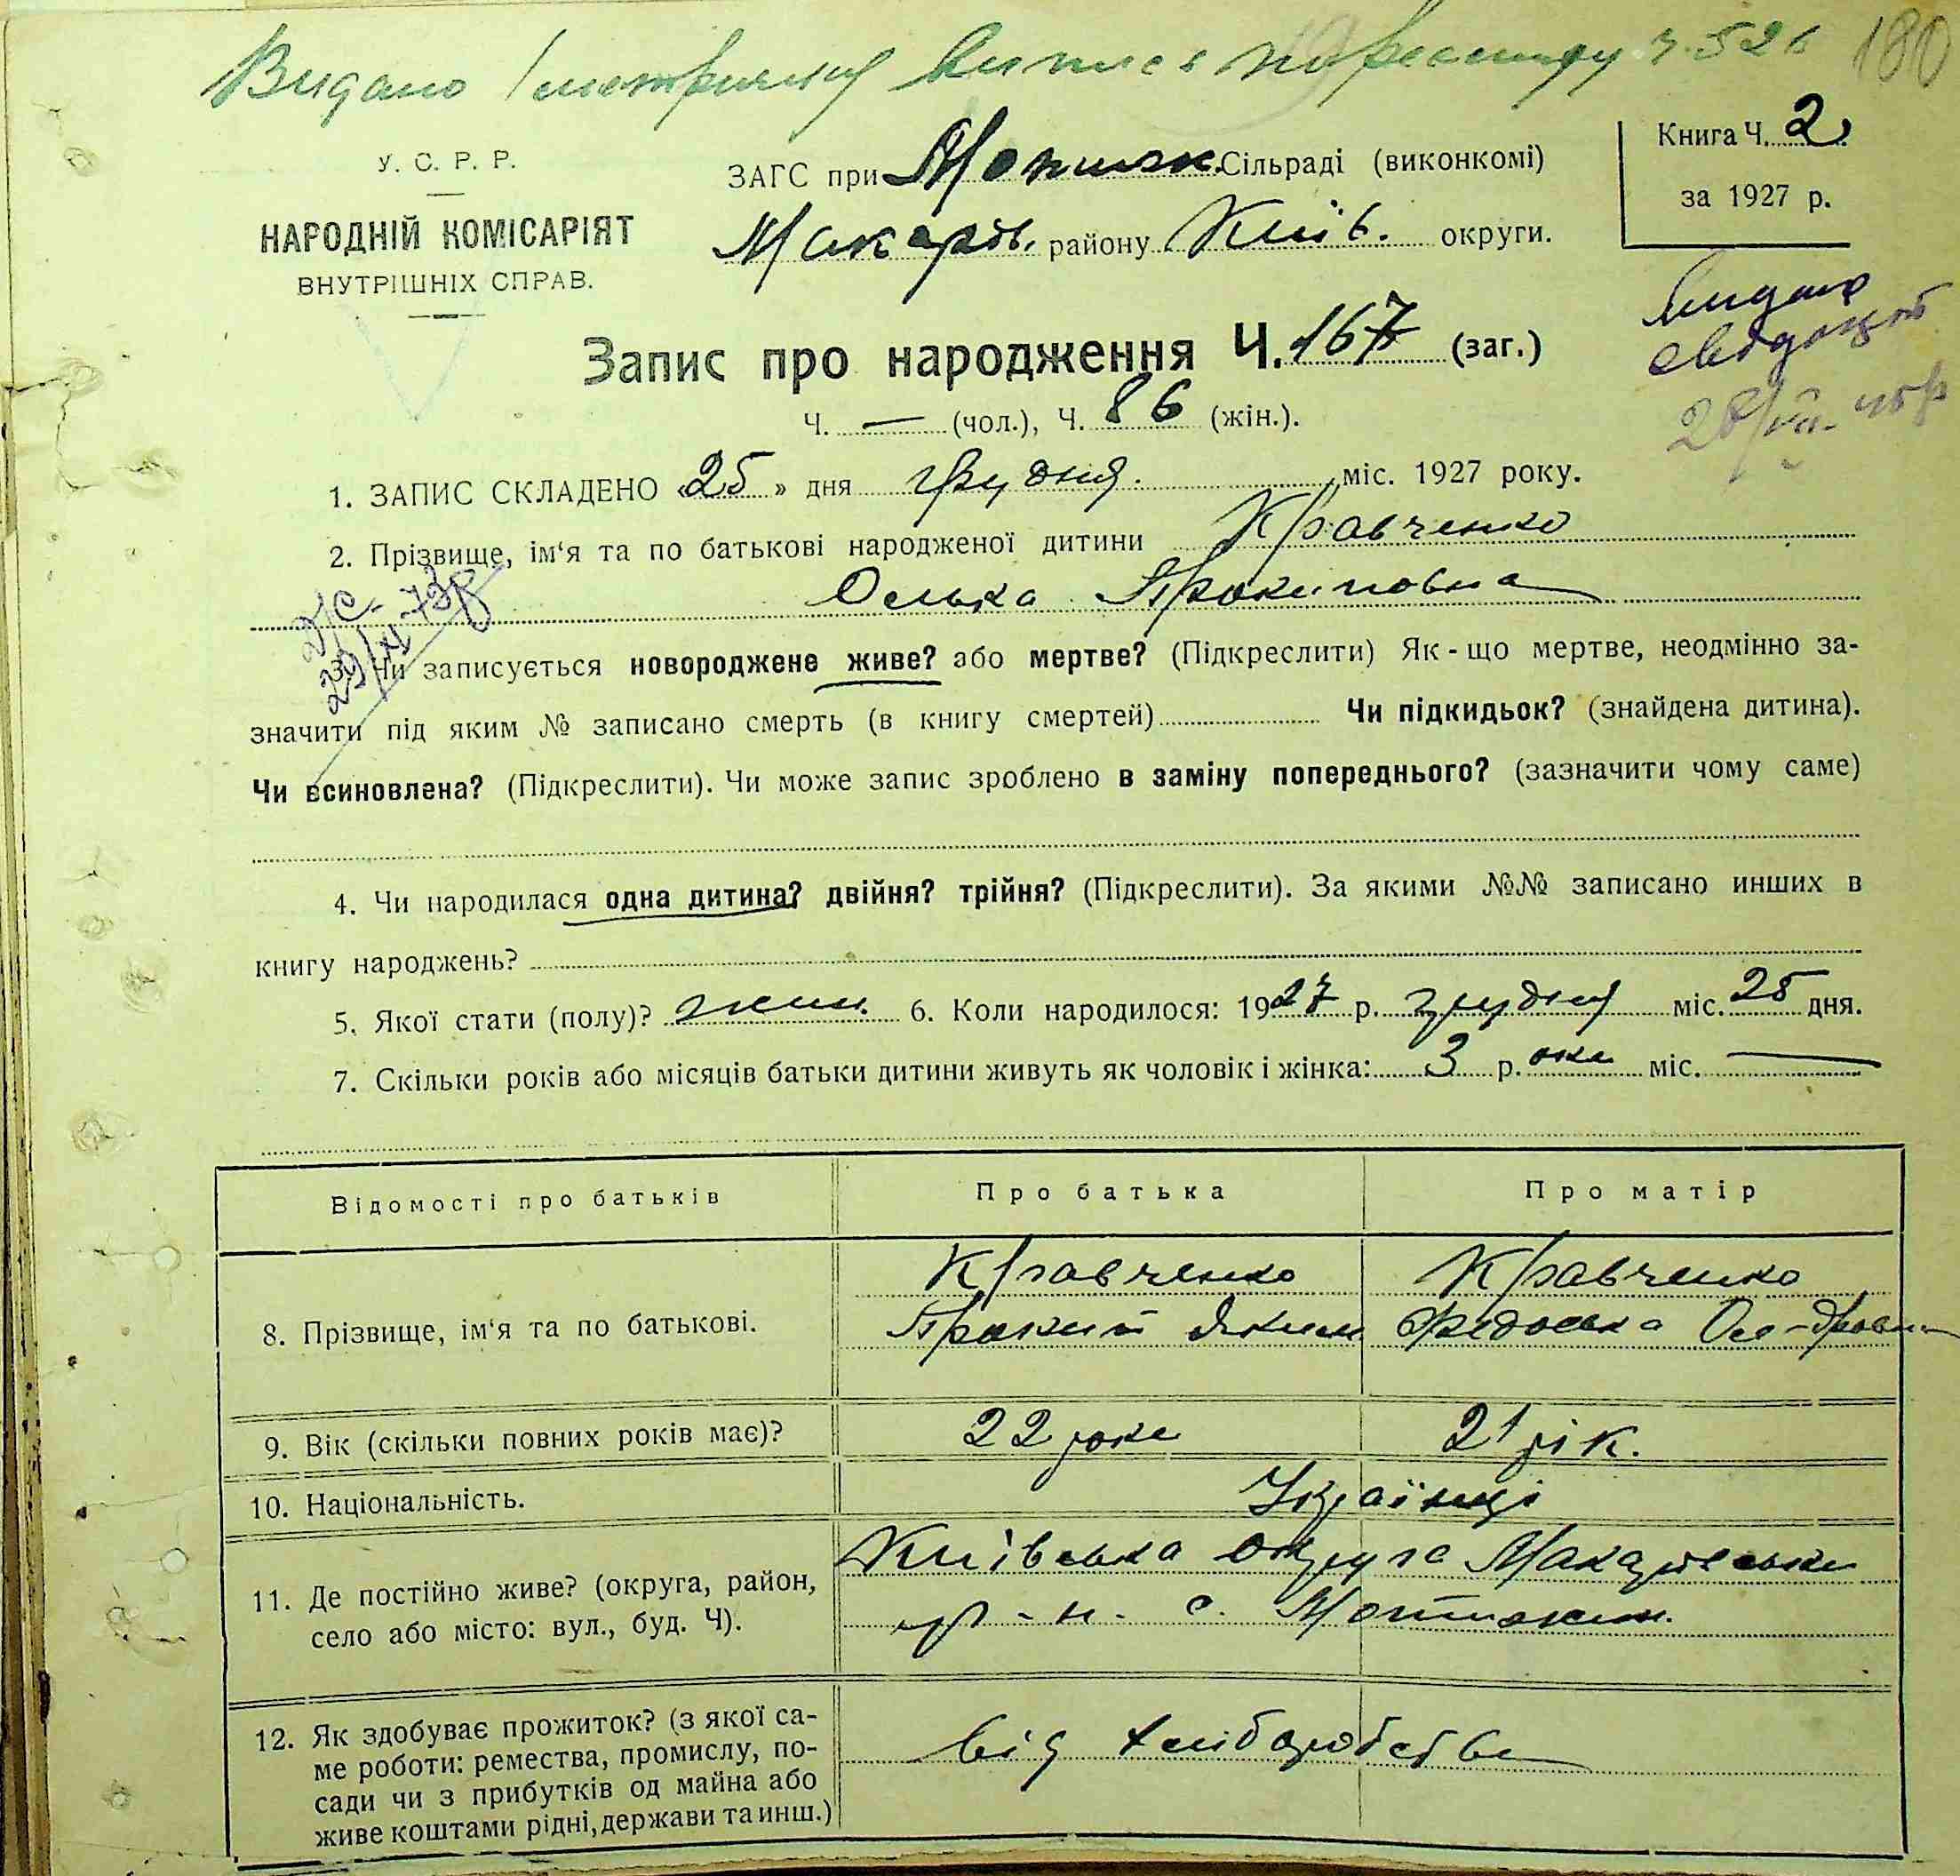 Видано 1 метричний випис по реєстру ч. 526
180
У. С. Р. Р.
НАРОДНІЙ КОМІСАРІЯТ
ВНУТРІШНІХ СПРАВ.
ЗАГС при Мотижн. Сільраді (виконкомі)
Макарів. району Київ. округи.
Книга Ч. 2
за 1927 р.
Видано
28/VII-
Запис про народження Ч. 167 (заг.)
Ч. — (чол.), Ч. 86 (жін.).
1. ЗАПИС СКЛАДЕНО «25» дня грудня. міс. 1927 року.
2. Прізвище, ім'я та по батькові народженої дитини Кравченко
Олька Прокиповна
29/XI-73р
3. Чи записується новороджене живе? або мертве? (Підкреслити) Як-що мертве, неодмінно за-
значити під яким № записано смерть (в книгу смертей) Чи підкидьок? (знайдена дитина).
Чи всиновлена? (Підкреслити). Чи може запис зроблено в заміну попереднього? (зазначити чому саме)
4. Чи народилася одна дитина? двійня? трійня? (Підкреслити). За якими №№ записано инших в
книгу народжень?
5. Якої стати (полу)? жин. 6. Коли народилося: 1927 р. грудня міс. 25 дня.
7. Скільки років або місяців батьки дитини живуть як чоловік і жінка: 3 р.оки міс. —
Відомості про батьків
Про батька
Про матір
8. Прізвище, ім'я та по батькові.
Кравченко
Прокип Яким
Кравченко
Федоська
9. Вік (скільки повних років має)?
22 роки
21 рік.
10. Національність.
Українці
11. Де постійно живе? (округа, район,
село або місто: вул., буд. Ч).
Київська округа Макарівськи
р-н. с. Мотижин.
12. Як здобуває прожиток? (з якої са-
ме роботи: ремества, промислу, по-
сади чи з прибутків од майна або
живе коштами рідні, держави та инш.)
від хліборобства